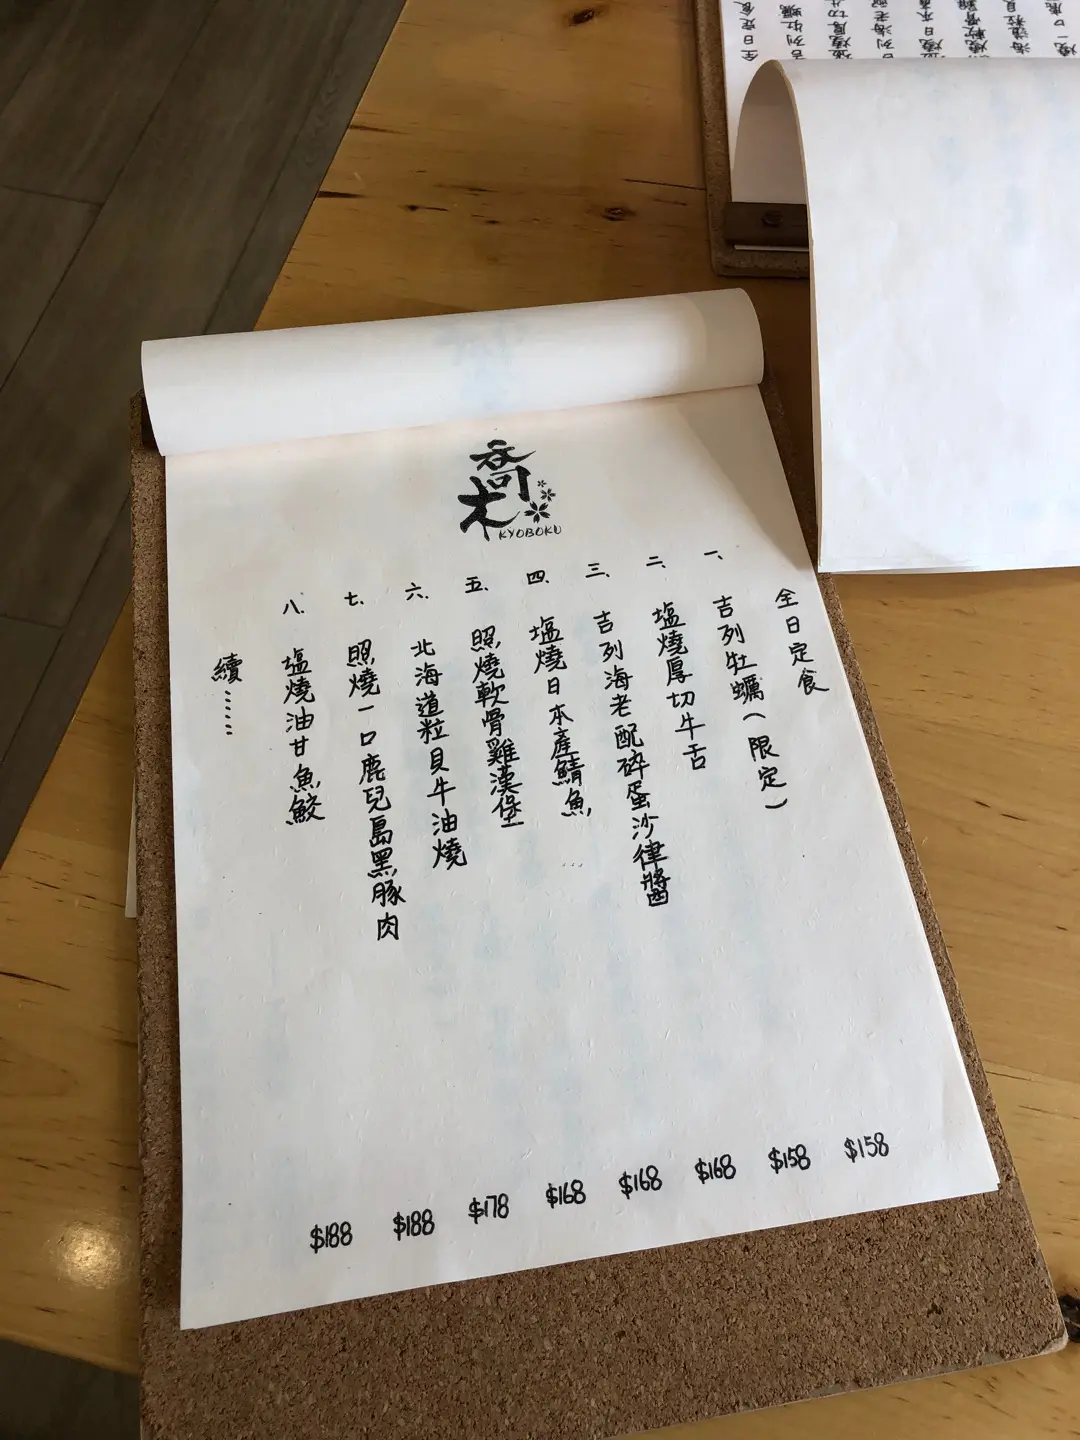 喬木
KYOBOKU
全日定食
一、吉列牡蠣(限定) $158
二、塩燒厚切牛舌 $158
三、吉列海老配碎蛋沙律醬 $168
四、塩燒日本產鯖魚 $168
五、照燒軟骨雞漢堡 $168
六、北海道粒貝牛油燒 $178
七、照燒一口鹿兒島黑豚肉 $188
八、塩燒油甘魚鮫 $188
續……
全日定食